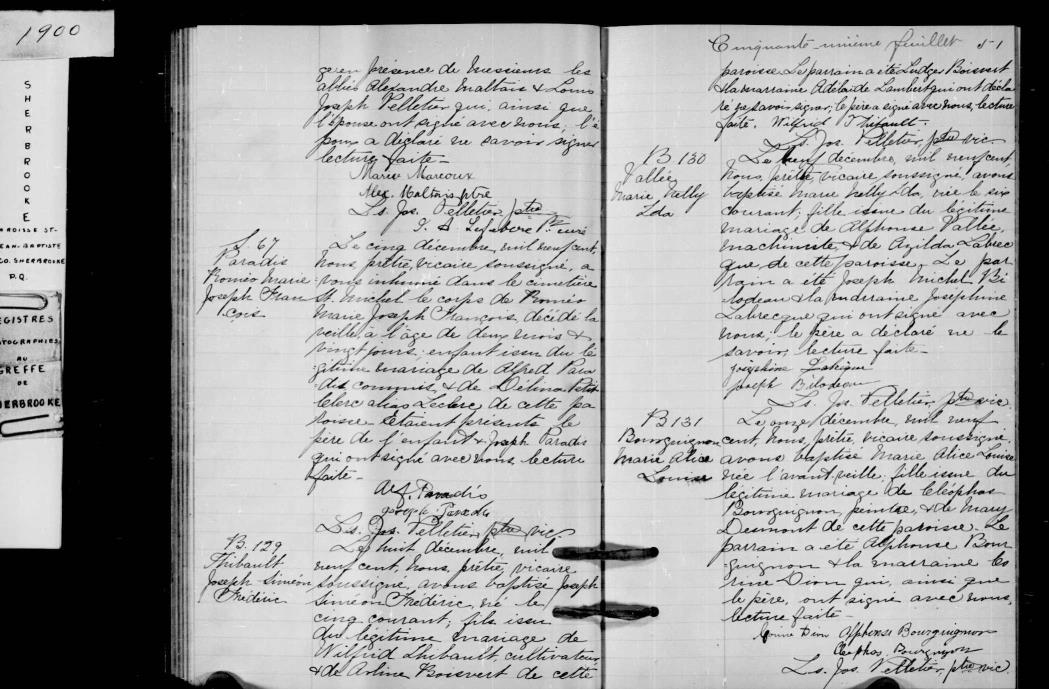 1900
SHERBROOKE
PAROISSE ST-
JEAN-BAPTISTE
CO. SHERBROOKE
P.Q.
REGISTRES
PHOTOGRAPHIES
AU
GREFFE
DE
SHERBROOKE
en présence de messieurs les
abbés Alexandre Maltais & Louis
Joseph Pelletier qui, ainsi que
l'épouse ont signé avec nous, l'é
poux a déclaré ne savoir signer
lecture faite.
Marie Marcoux
Alex. Maltais ptre
Ls. Jos. Pelletier, ptre
Lefebvre Ptre curé
S. 67
Paradis
Roméo Marie
Joseph Fran
çois
Le cinq décembre, mil neuf cent,
nous, prêtre, vicaire soussigné, a
vons inhumé dans le cimetière
St. Michel le corps de Roméo
Marie Joseph François, décédé la
veille, à l'âge de deux mois &
vingt jours, enfant issu du lé
gitime mariage de Alfred Para
dis commis & de Délina Petit
Clerc alias Leclerc de cette pa
roisse. Etaient présents le
père de l'enfant & Joseph Paradis
qui ont signé avec nous, lecture
faite.
Alf. Paradis
Joseph Paradis
Ls. Jos. Pelletier, ptre vic.
B. 129
Thibault
Joseph Siméon
Frédéric
Le huit décembre, mil
neuf cent, nous, prêtre, vicaire
soussigné, avons baptisé Joseph
Siméon Frédéric, né le
cinq courant, fils issu
du légitime mariage de
Wilfrid Thibault, cultivateur
& de Arline Boisvert de cette
Cinquante-unième feuillet 51
paroisse. Le parrain a été Ludger Boisvert
& la marraine Adelaide Lambert qui ont décla
ré ne savoir signer; le père a signé avec nous, lecture
faite. Wilfrid Thibault.
Ls. Jos. Pelletier, ptre vic.
B 130
Vallée
Marie Nelly
Lda
Le neuf décembre, mil neuf cent,
nous, prêtre, vicaire soussigné, avons
baptisé Marie Nelly Lda, née le six
courant, fille issue du légitime
mariage de Alphonse Vallée,
machiniste, & de Azilda Labrec
que de cette paroisse. Le par
rain a été Joseph Michel Bi
lodeau & la marraine Josephine
Labrecque qui ont signé avec
nous, le père a déclaré ne le
savoir, lecture faite.
Josephine
Joseph Bilodeau
Ls. Jos. Pelletier, ptre vic.
B 131
Bourguignon
Marie Alice
Louise
Le onze décembre, mil neuf
cent, nous, prêtre, vicaire soussigné,
avons baptisé Marie Alice Louise
née l'avant-veille, fille issue du
légitime mariage de Cléophas
Bourguignon, peintre, & de Mary
Desmont de cette paroisse. Le
parrain a été Alphonse Bour
guignon & la marraine Co
rinne Dion qui, ainsi que
le père, ont signé avec nous,
lecture faite.
Corine Dion Alphonse Bourguignon
Cleophas Bourguignon
Ls. Jos. Pelletier, ptre vic.